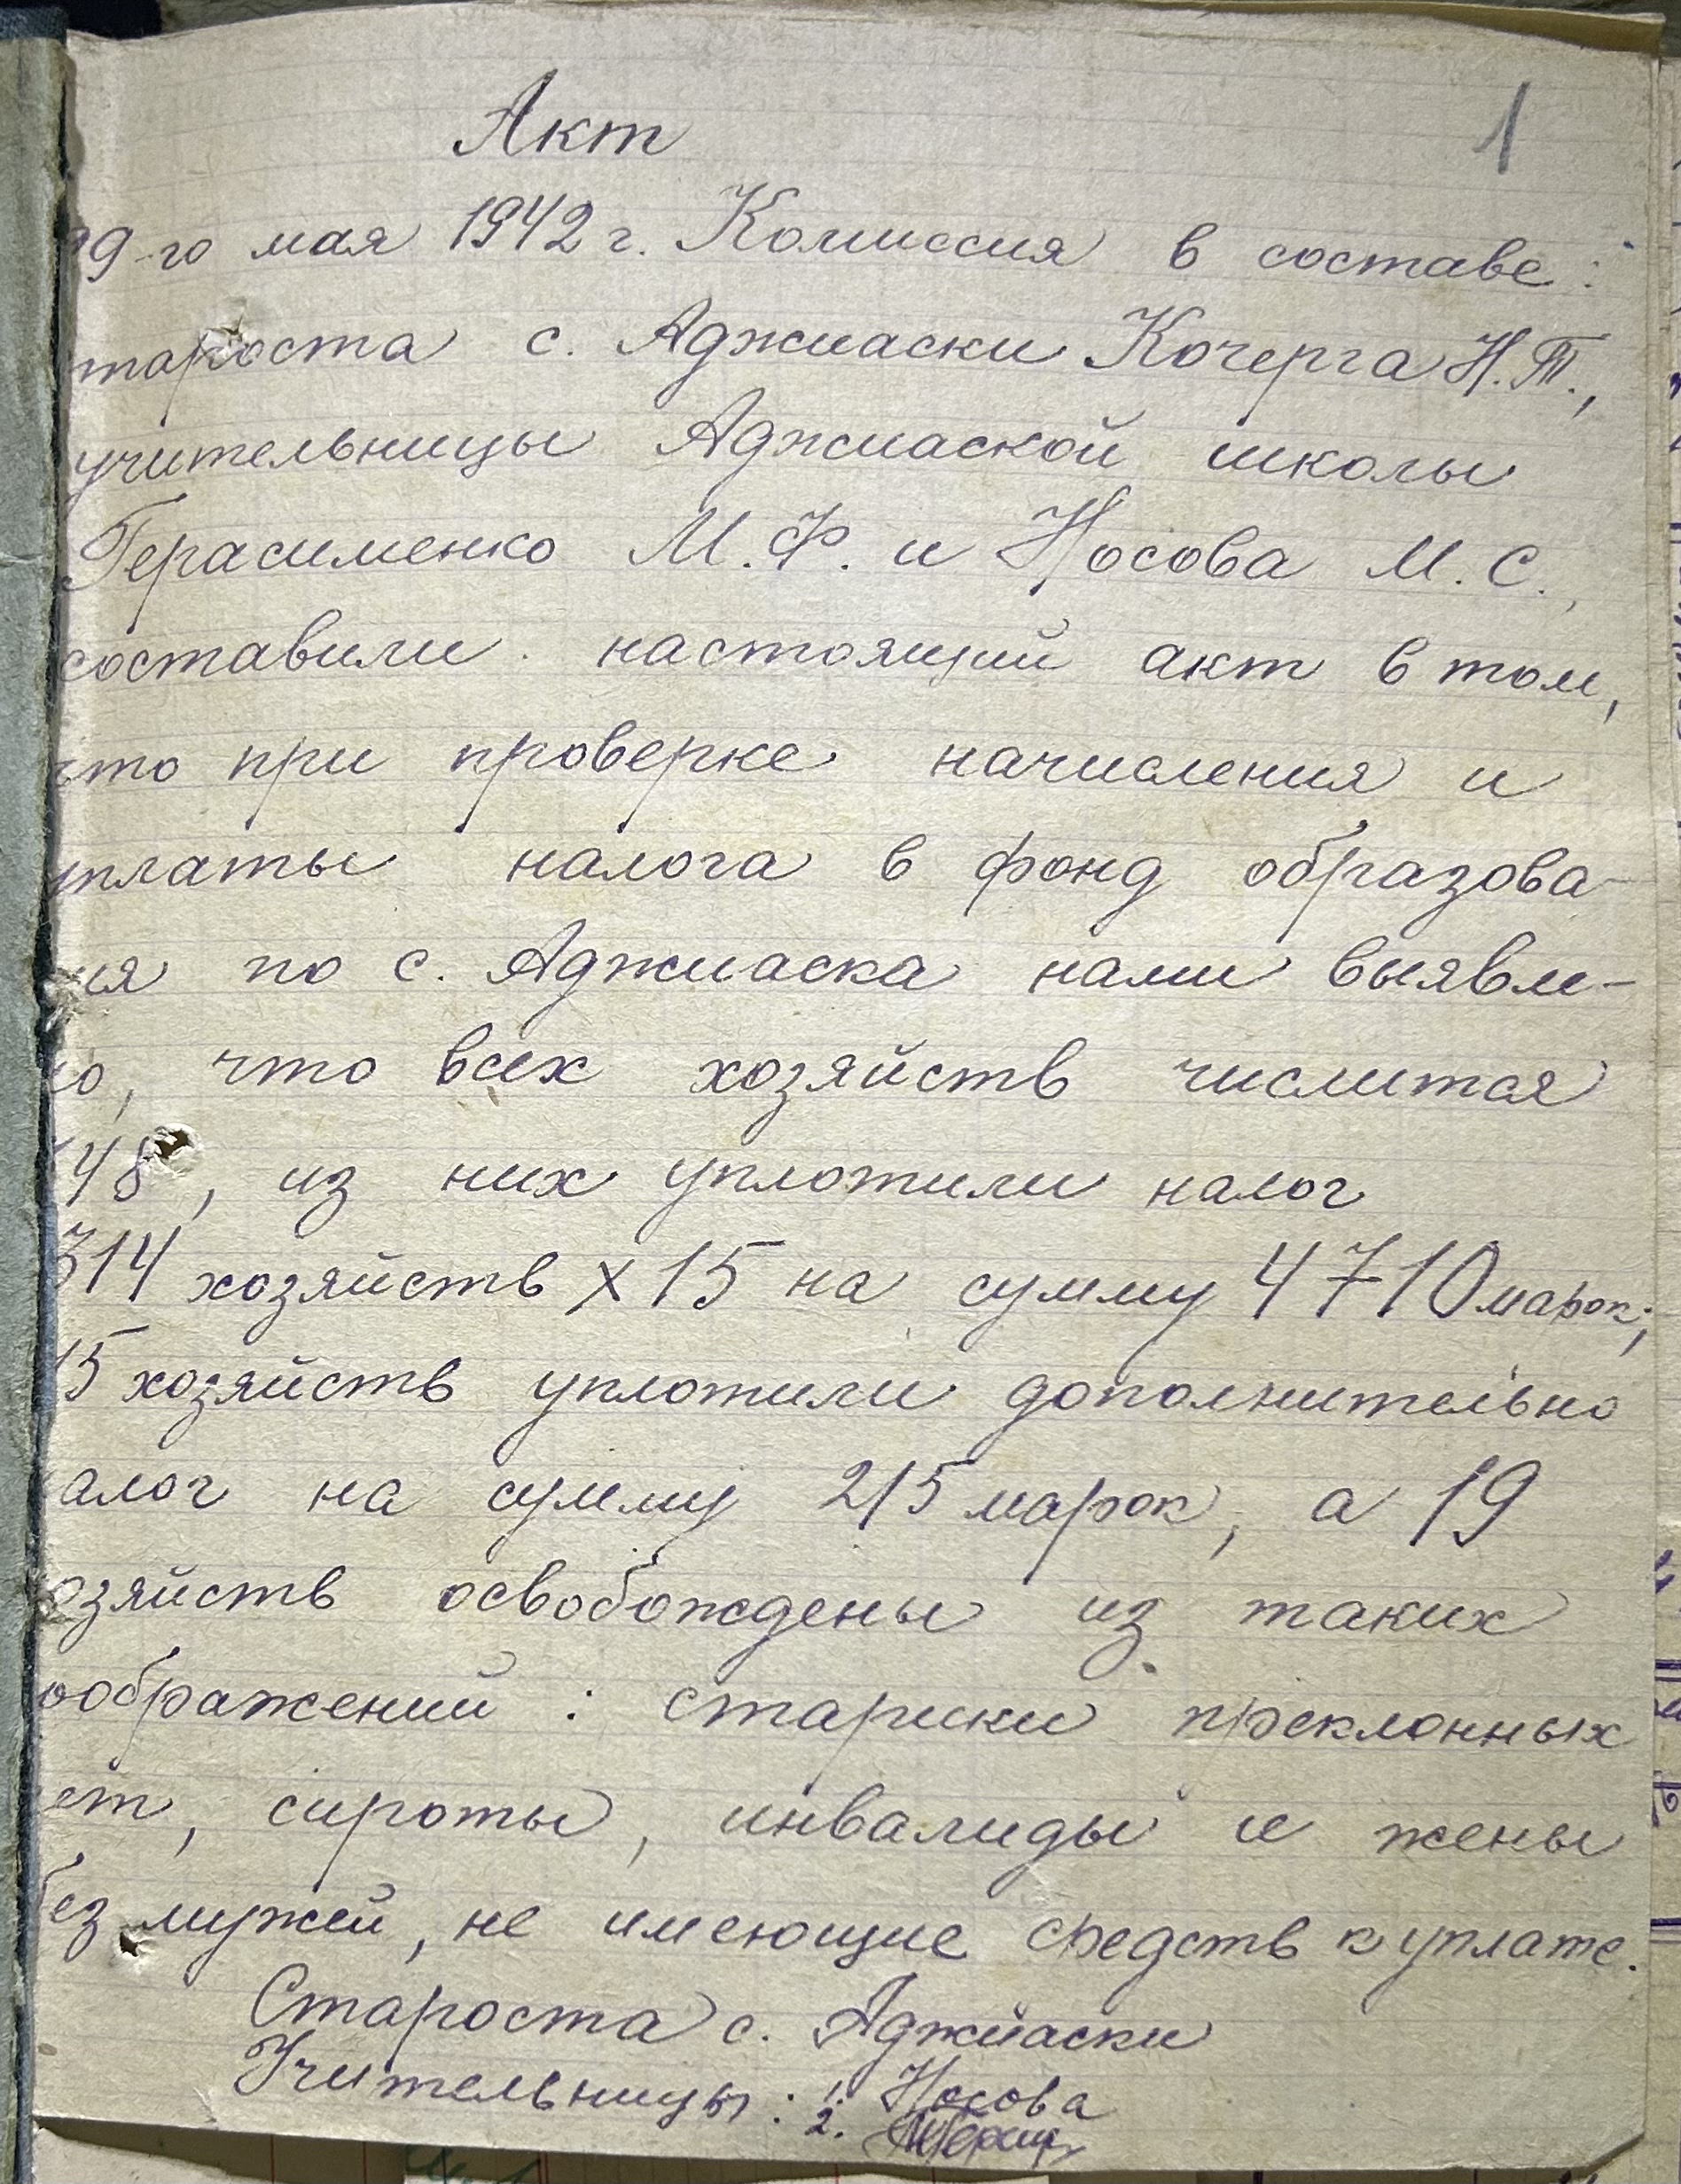 Акт
1
19-го мая 1942 г. Комиссия в составе:
тароста с. Аджиаски Кочерга Н.Т.,
учительницы Аджиаской школы
Герасименко М.Ф. и Носова М.С.,
составили настоящий акт в том,
что при проверке начисления и
уплаты налога в фонд образова-
ия по с. Аджиаска нами выявле-
но, что всех хозяйств числится
348, из них уплотили налог
314 хозяйств х 15 на сумму 4710 марок;
15 хозяйств уплотили дополнительно
алог на сумму 215 марок, а 19
озяйств освобождены из таких
ображений: старики преклонных
ет, сироты, инвалиды и жены
без мужей, не имеющие средств к уплате.
Староста с. Аджиаски
Учительницы: 1. Носова
2.